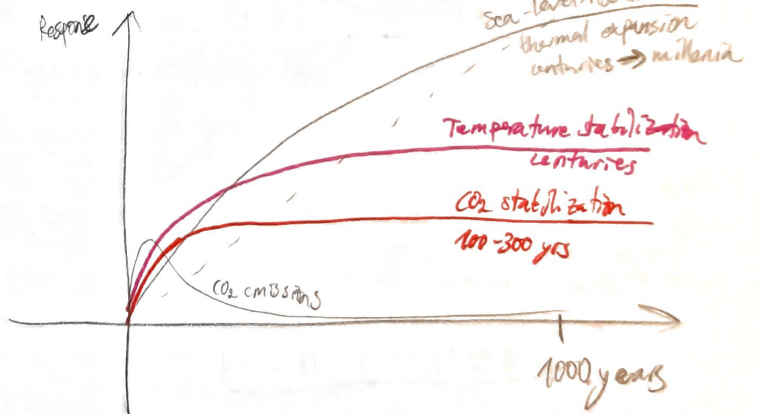 Response
Sea-level
thermal expansion
centuries → millenia
Temperature stabilization
centuries
CO2 stabilization
100-300 yrs
CO2 emissions
1000 years